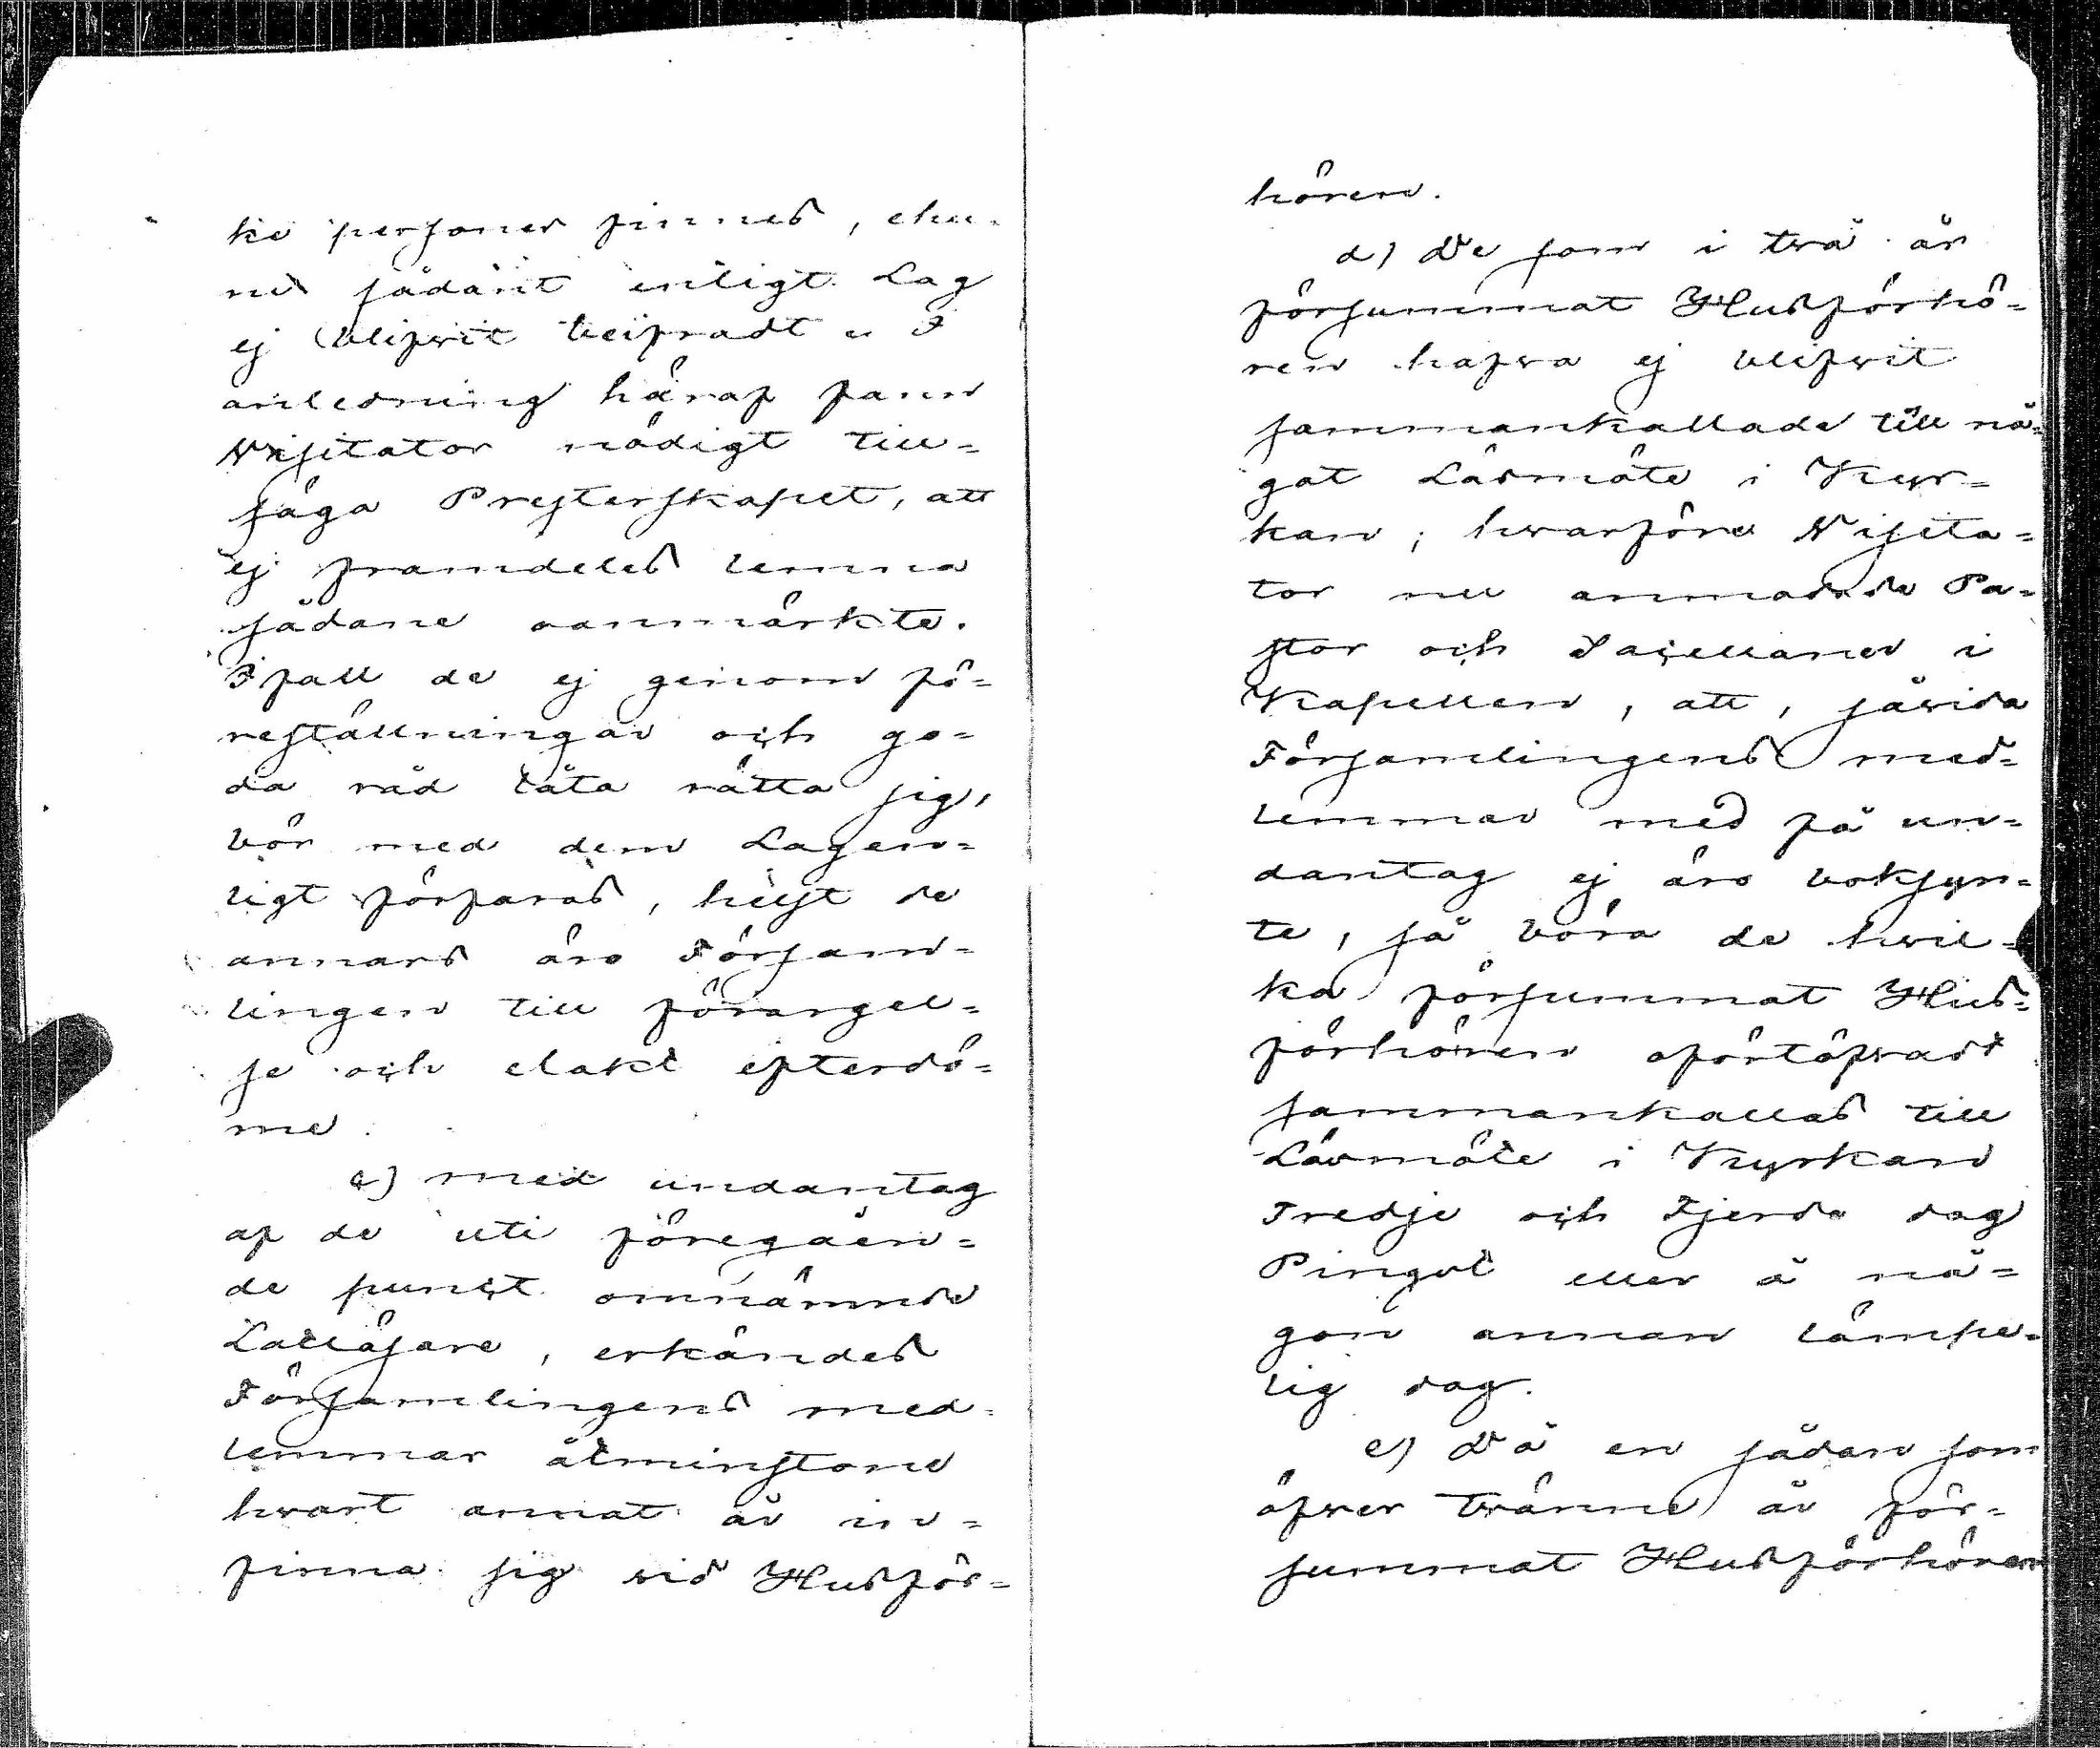 ke personer finnes, ehu-
ru sådant enligt Lag
ej blifvit beifradt. I
anledning häraf fann
Visitator nödigt till-
säga Presterskapet, att
ej framdeles lemna
sådane oanmärkte.
Ifall de ej genom fö-
reställningar och go-
da råd låta rätta sig,
bör med dem Lagen-
ligt förfaras, helst de
annars äro Försam-
lingen till förargel-
se och elakt efterdö-
me.
c) med undantag
af de uti föregåen-
de punct omnämnde
Lättjare, erkändes
Församlingens med-
lemmar åtminstone
hvart annat år in-
finna sig vid Husför-
hören.
d) De som i två år
försummat Husförhö-
ren hafva ej blifvit
sammankallade till nå-
got Läsmöte i Kyr-
kan; hvarföre Visita-
tor nu anmodade Pa-
stor och Sacellanen i
Kapellen, att, såvida
Församlingens med-
lemmar med få un-
dantag ej äro boksyn-
te, så böra de hvil-
ka försummat Hus-
förhören oförtöfvadt
sammankallas till
Läsmöte i Kyrkan
Tredje och Fjerde dag
Pingst eller å nå-
gon annan lämpe-
lig dag.
e) Då en sådan som
öfver tvänne år för-
summat Husförhören